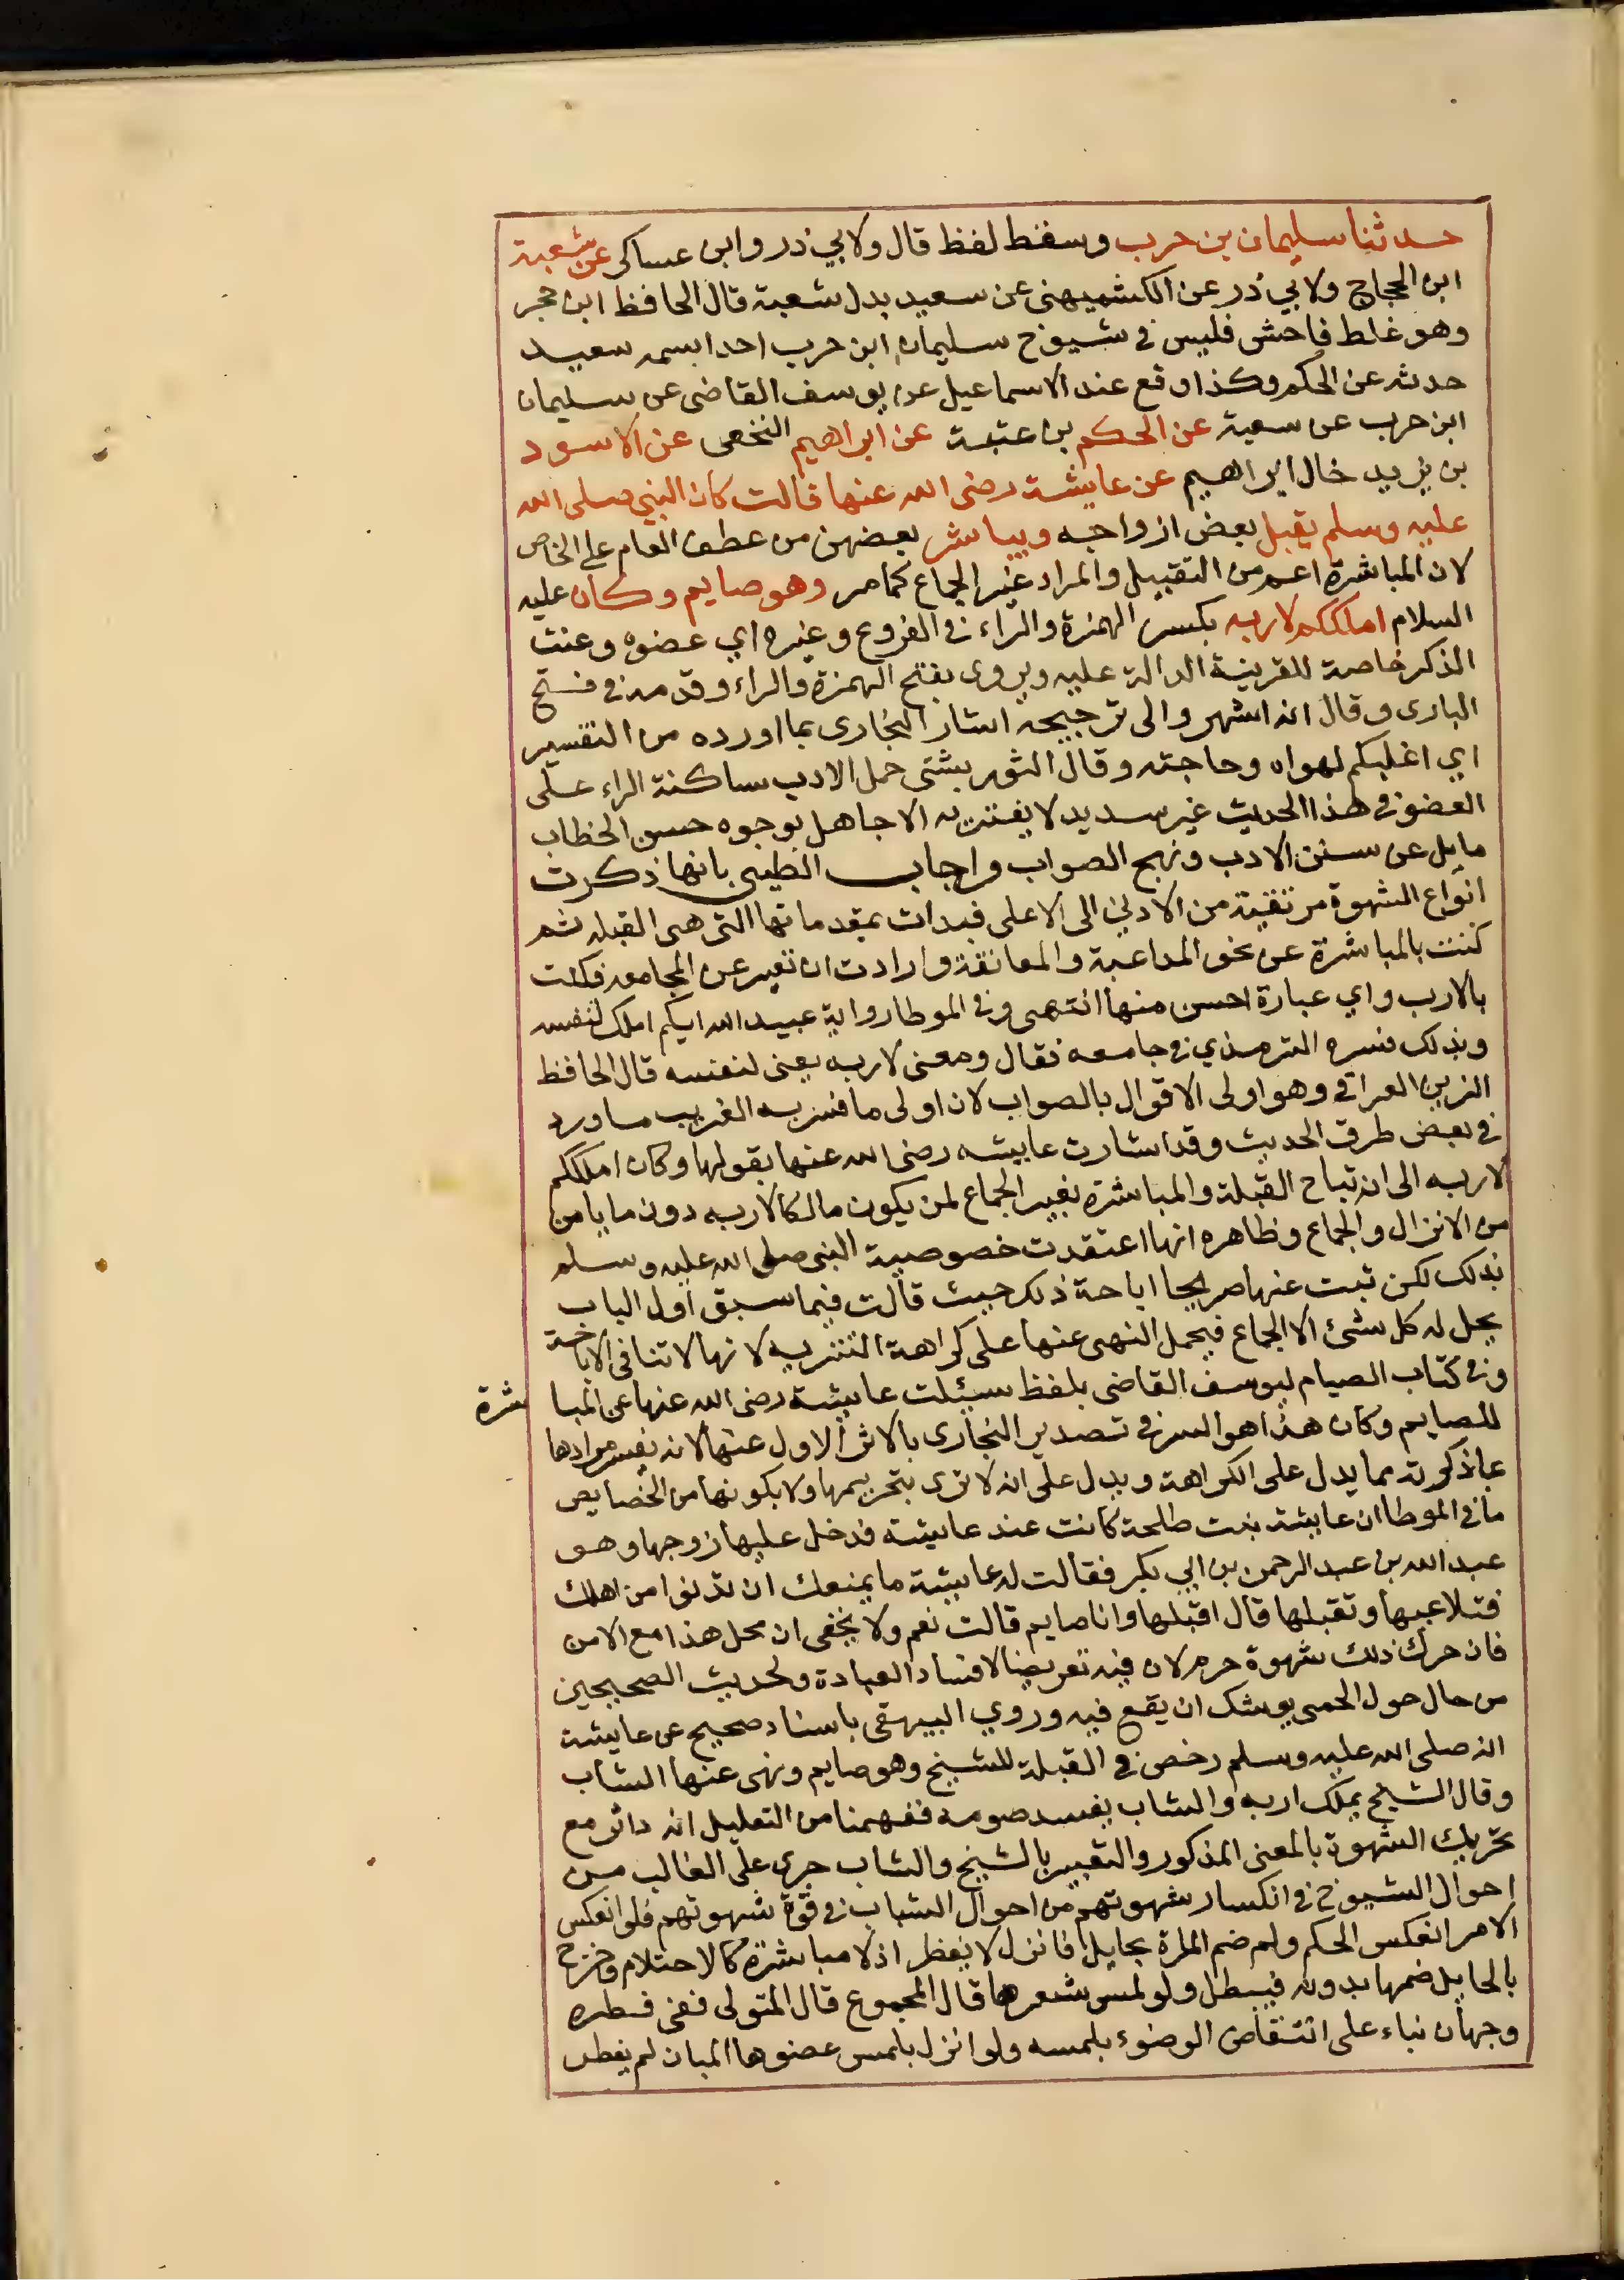 حدثنا سليمان بن حرب وسقط لفظ قال ولابي ذر وابن عساكر عن شعبة
ابن الحجاج ولابي ذر عن الكشميهني عن سعيد بدل شعبة قال الحافظ ابن حجر
وهو غلط فاحش فليس في شيوخ سليمان ابن حرب احدا سمه سعيد
حدثه عن الحكم وكذا وقع عند الاسماعيل عن يوسف القاضى عن سليمان
ابن حرب عن سعبة عن الحكم بن عتبة عن ابراهيم النخعى عن الاسود
بن يزيد خال ابراهيم عن عايشة رضى الله عنها قالت كان النبي صلى الله
عليه وسلم يقبل بعض ازواجه ويباشر بعضهن من عطف العام على الخاص
لان المباشرة اعم من التقبيل والمراد غير الجماع كما مر وهو صايم وكان عليه
السلام املككم لاربه بكسر الهمزة والراء في الفروع وغيره اي عضوه وعنت
الذكر خاصة للقرينة الدالة عليه ويروى بفتح الهمزة والراء وقدمه في فتح
البارى وقال انه اشهر والى ترجيحه اشار البخارى بما اورده من التفسير
اي اغلبكم لهواه وحاجته وقال التوربشتى حمل الارب ساكنة الراء على
العضو في هذا الحديث غير سديد لا يفتن به الا جاهل بوجوه حسن الخطاب
مايل عن سنن الادب ونهج الصواب واجاب الطيبى بانها ذكرت
انواع الشهوة مرتقية من الادنى الى الاعلى فبدات بمقدماتها التى هى القبلة ثم
كنت بالمباشرة عن نحو المداعبة والمعانقة وارادت ان تعبر عن المجامعه فكنت
بالارب واي عبارة احسن منها انتهى وفي الموطا رواية عبيد الله ايكم املك لنفسه
وبذلك فسره الترمذي في جامعه فقال ومعنى لاربه يعنى لنفسه قال الحافظ
الزين العراقي وهو اولى الاقوال بالصواب لان اولى ما فسر به الغريب ما ورد
في بعض طرق الحديث وقد اشارت عايشه رضى الله عنها بقولها وكان املككم
لاربه الى انه تباح القبلة والمباشرة بغير الجماع لمن يكون مالكا لاربه دون ما يامن
من الانزال والجماع وظاهره انها اعتقدت خصوصية النبى صلى الله عليه وسلم
بذلك لكن ثبت عنها صريحا اباحة ذلك حيث قالت فيما سبق اول الباب
يحل له كل شئ الا الجماع فيحمل النهى عنها على كراهة التنزيه لانها لا تنافى الاباحة
وفي كتاب الصيام ليوسف القاضى بلفظ سيئلت عايشة رضى الله عنها عن المبا شرة
للصايم وكان هذا هو السر في تصدير البخارى بالاثر الاول عنها لانه يفسر مرادها
بما ذكرته مما يدل على الكراهة ويدل على انه لا ترى بتحريمها ولا بكونها من الخصايص
ما في الموطا ان عايشة بنت طلحة كانت عند عايشة فدخل عليها زوجها وهو
عبد الله بن عبد الرحمن بن ابي بكر فقالت له عايشة ما يمنعك ان تدنوا من اهلك
فتلاعبها وتقبلها قال اقبلها وانا صايم قالت نعم ولا يخفى ان محل هذا مع الامن
فان حرك ذلك شهوة حرم لان فيه تعريضا لافساد العبادة ولحديث الصحيحين
من حال حول الحمى يوشك ان يقع فيه وروي البيهقى باسناد صحيح عن عايشة
انه صلى الله عليه وسلم رخص في القبلة للشيخ وهو صايم ونهى عنها الشاب
وقال الشيخ يملك اربه والشاب يفسد صومه ففهمنا من التعليل انه دائر مع
تحريك الشهوة بالمعنى المذكور والتعبير بالشيخ والشاب جرى على الغالب من
احوال الشيوخ في انكسار شهوتهم من احوال الشباب في قوة شهوتهم فلو انعكس
الامر انعكس الحكم ولم ضم المراة بحايل فانزل لا يفطر اذ لا مباشرة كالاحتلام وخرج
بالحايل ضمها بدونه فيبطل ولو لمس شعرها قال المجموع قال المتولى ففى فطره
وجهان نباء على انتقاض الوضوء بلمسه ولو انزل بلمس عضوها المبان لم يفطر